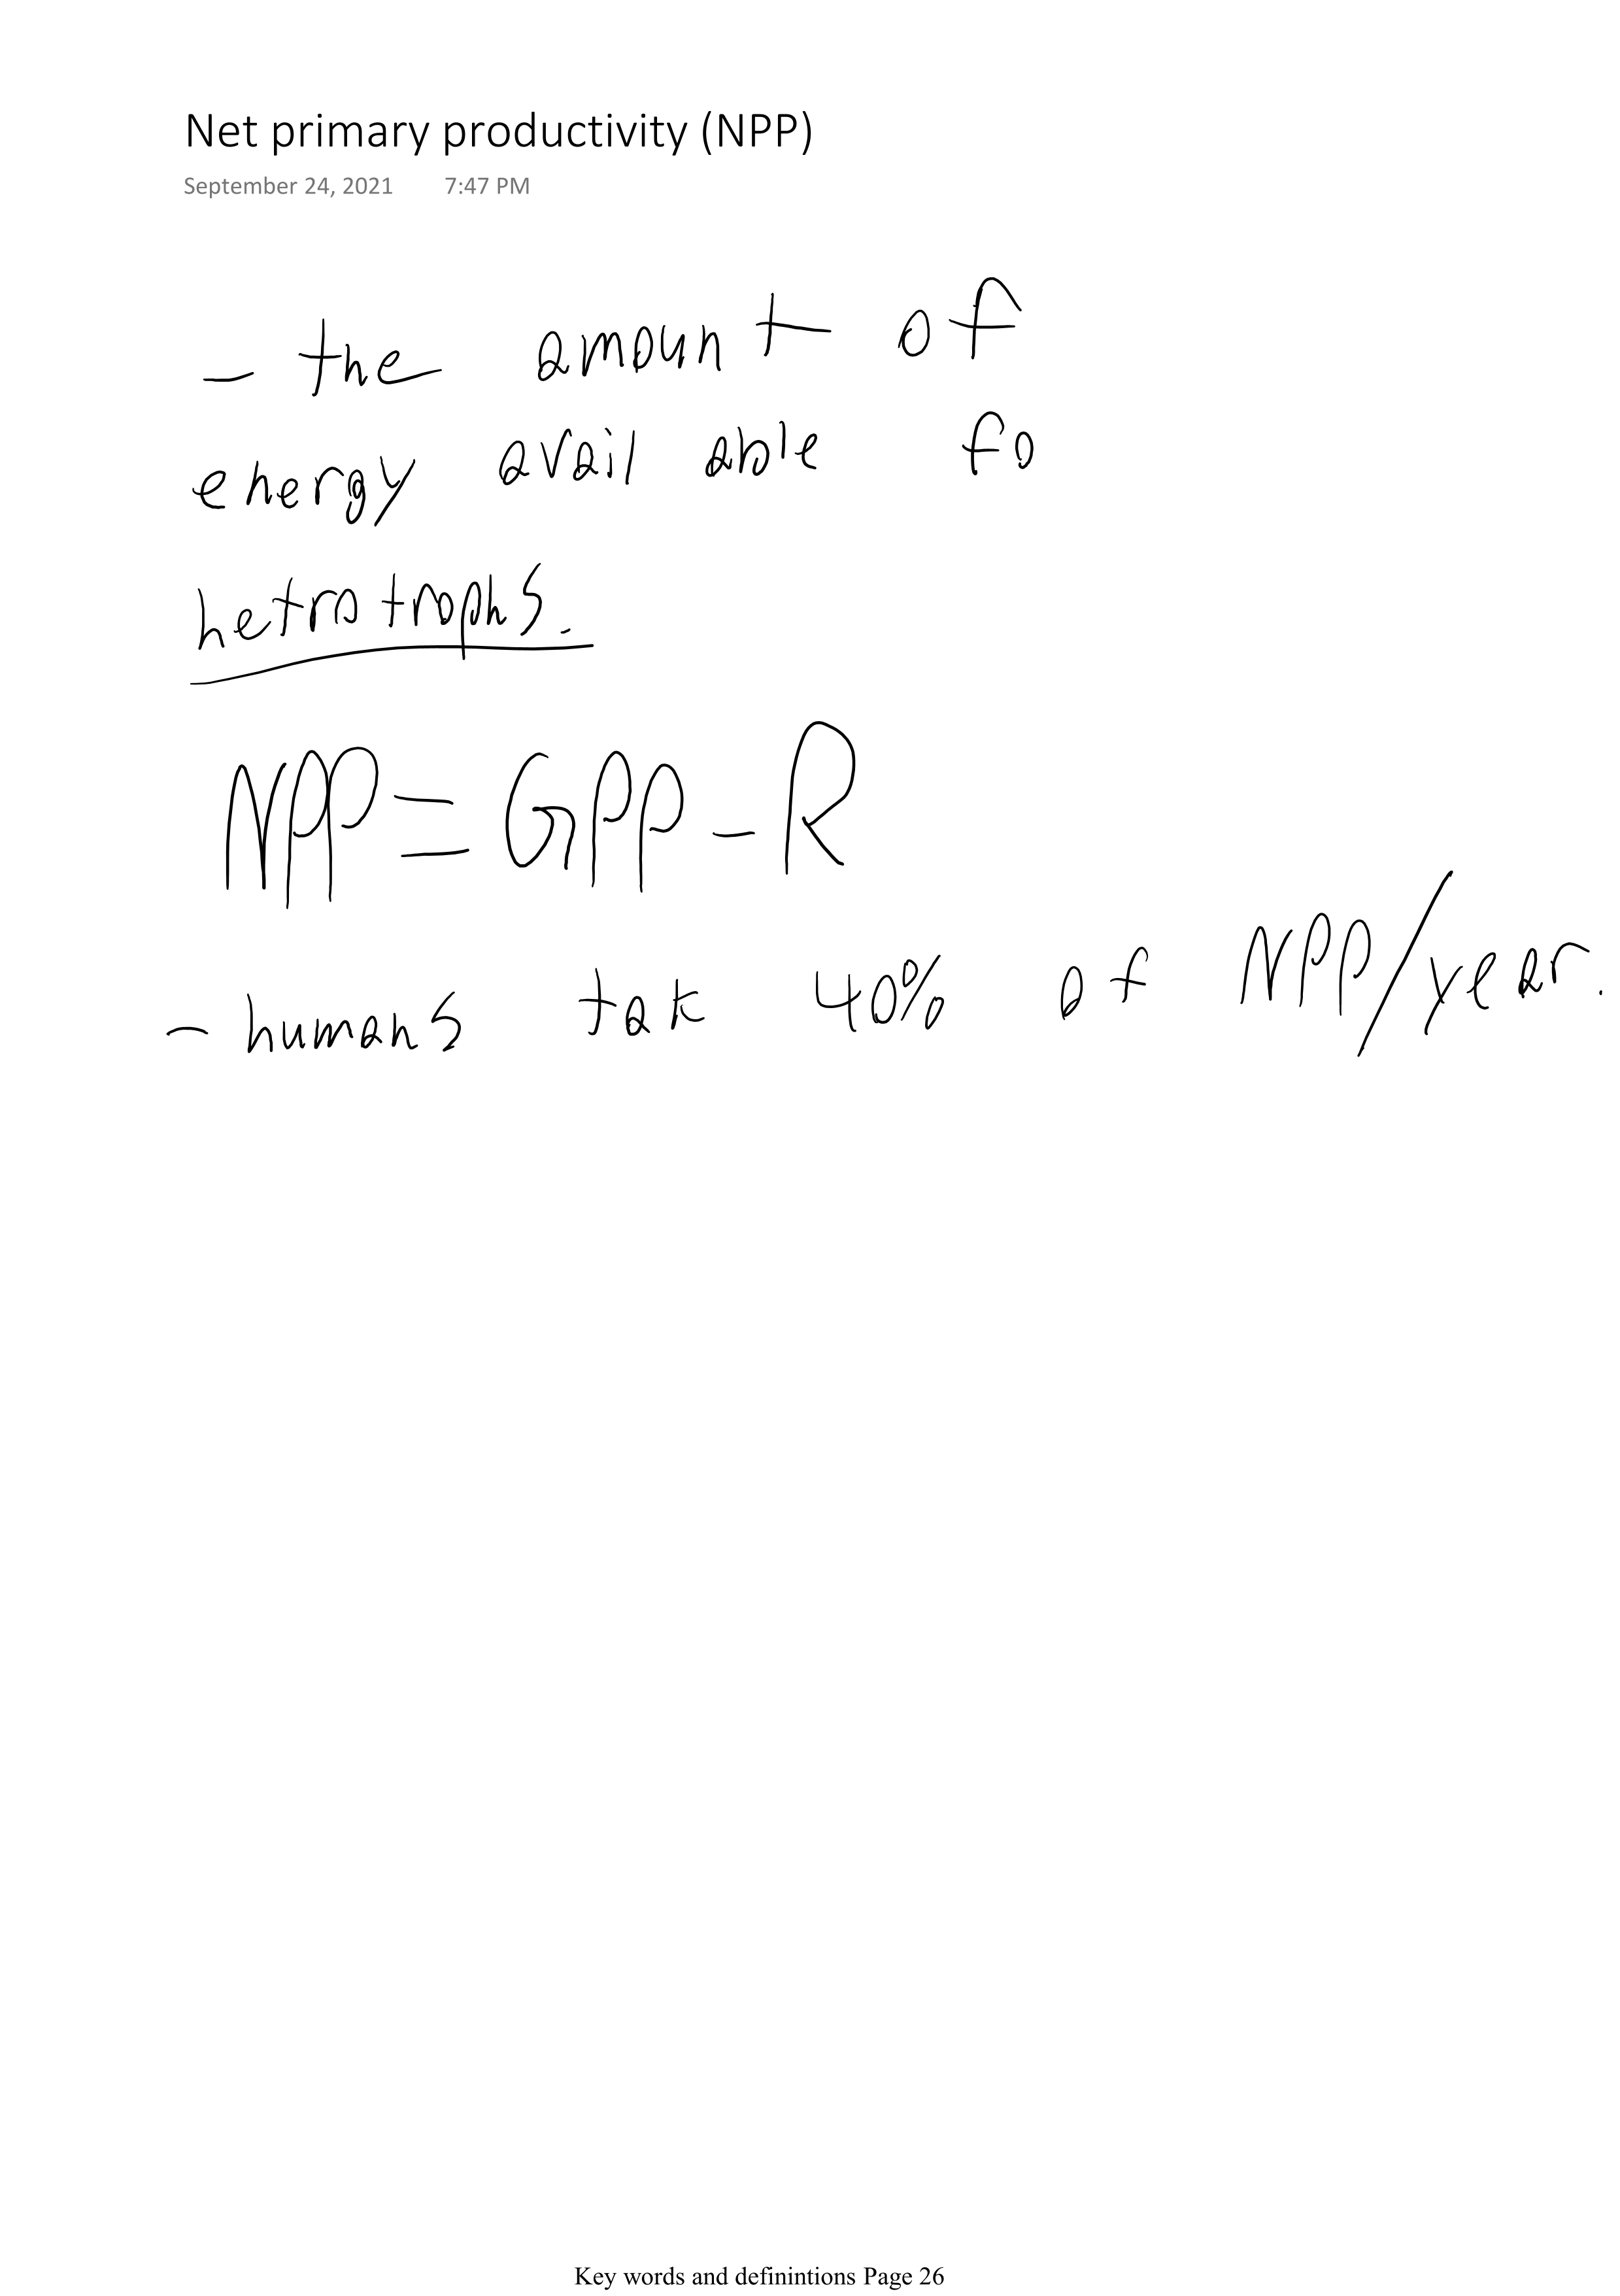 Net primary productivity (NPP)
September 24, 2021 7:47 PM
- the amount of
energy available fo
hetrotrophs.
NPP = GPP - R
- humans tak 40% of NPP/year.
Key words and definintions Page 26